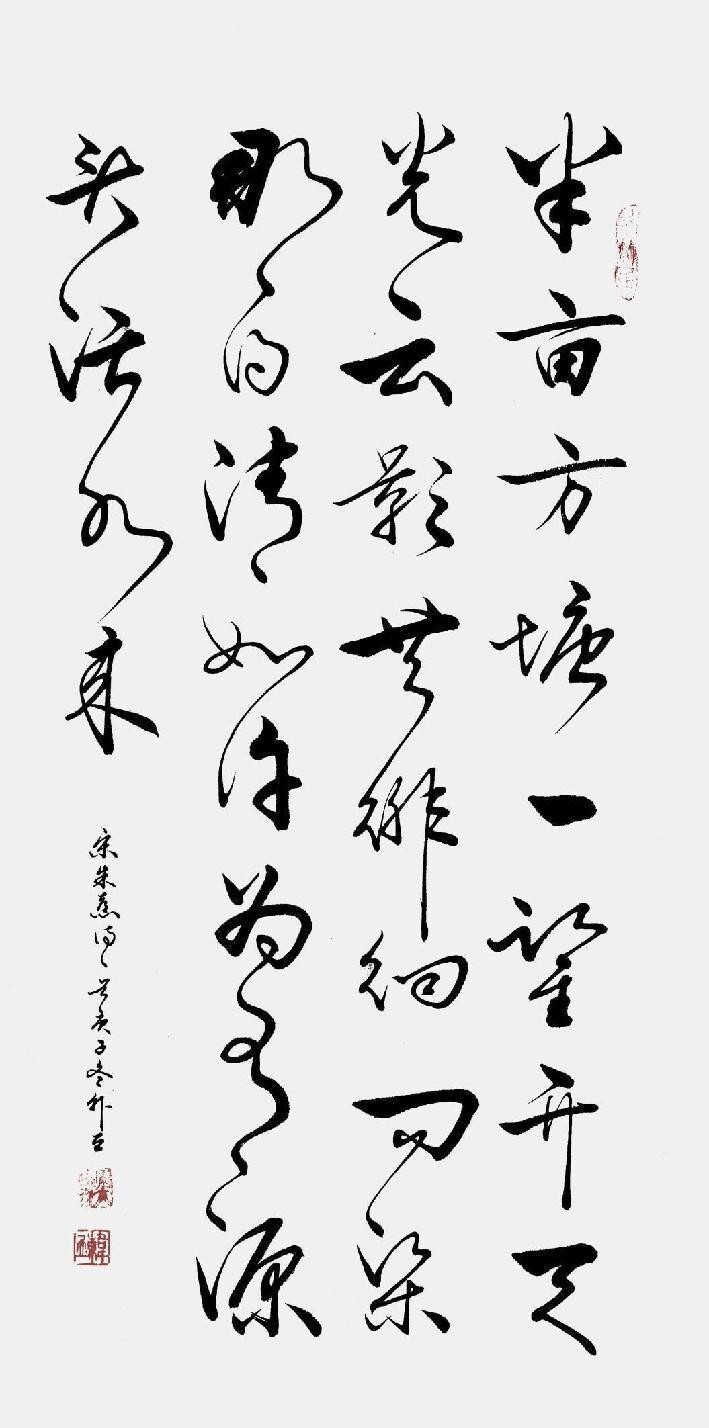 半亩方塘一鉴开天
光云影共徘徊问渠
那得清如许为有源
头活水来
宋朱熹诗 岁庚子冬